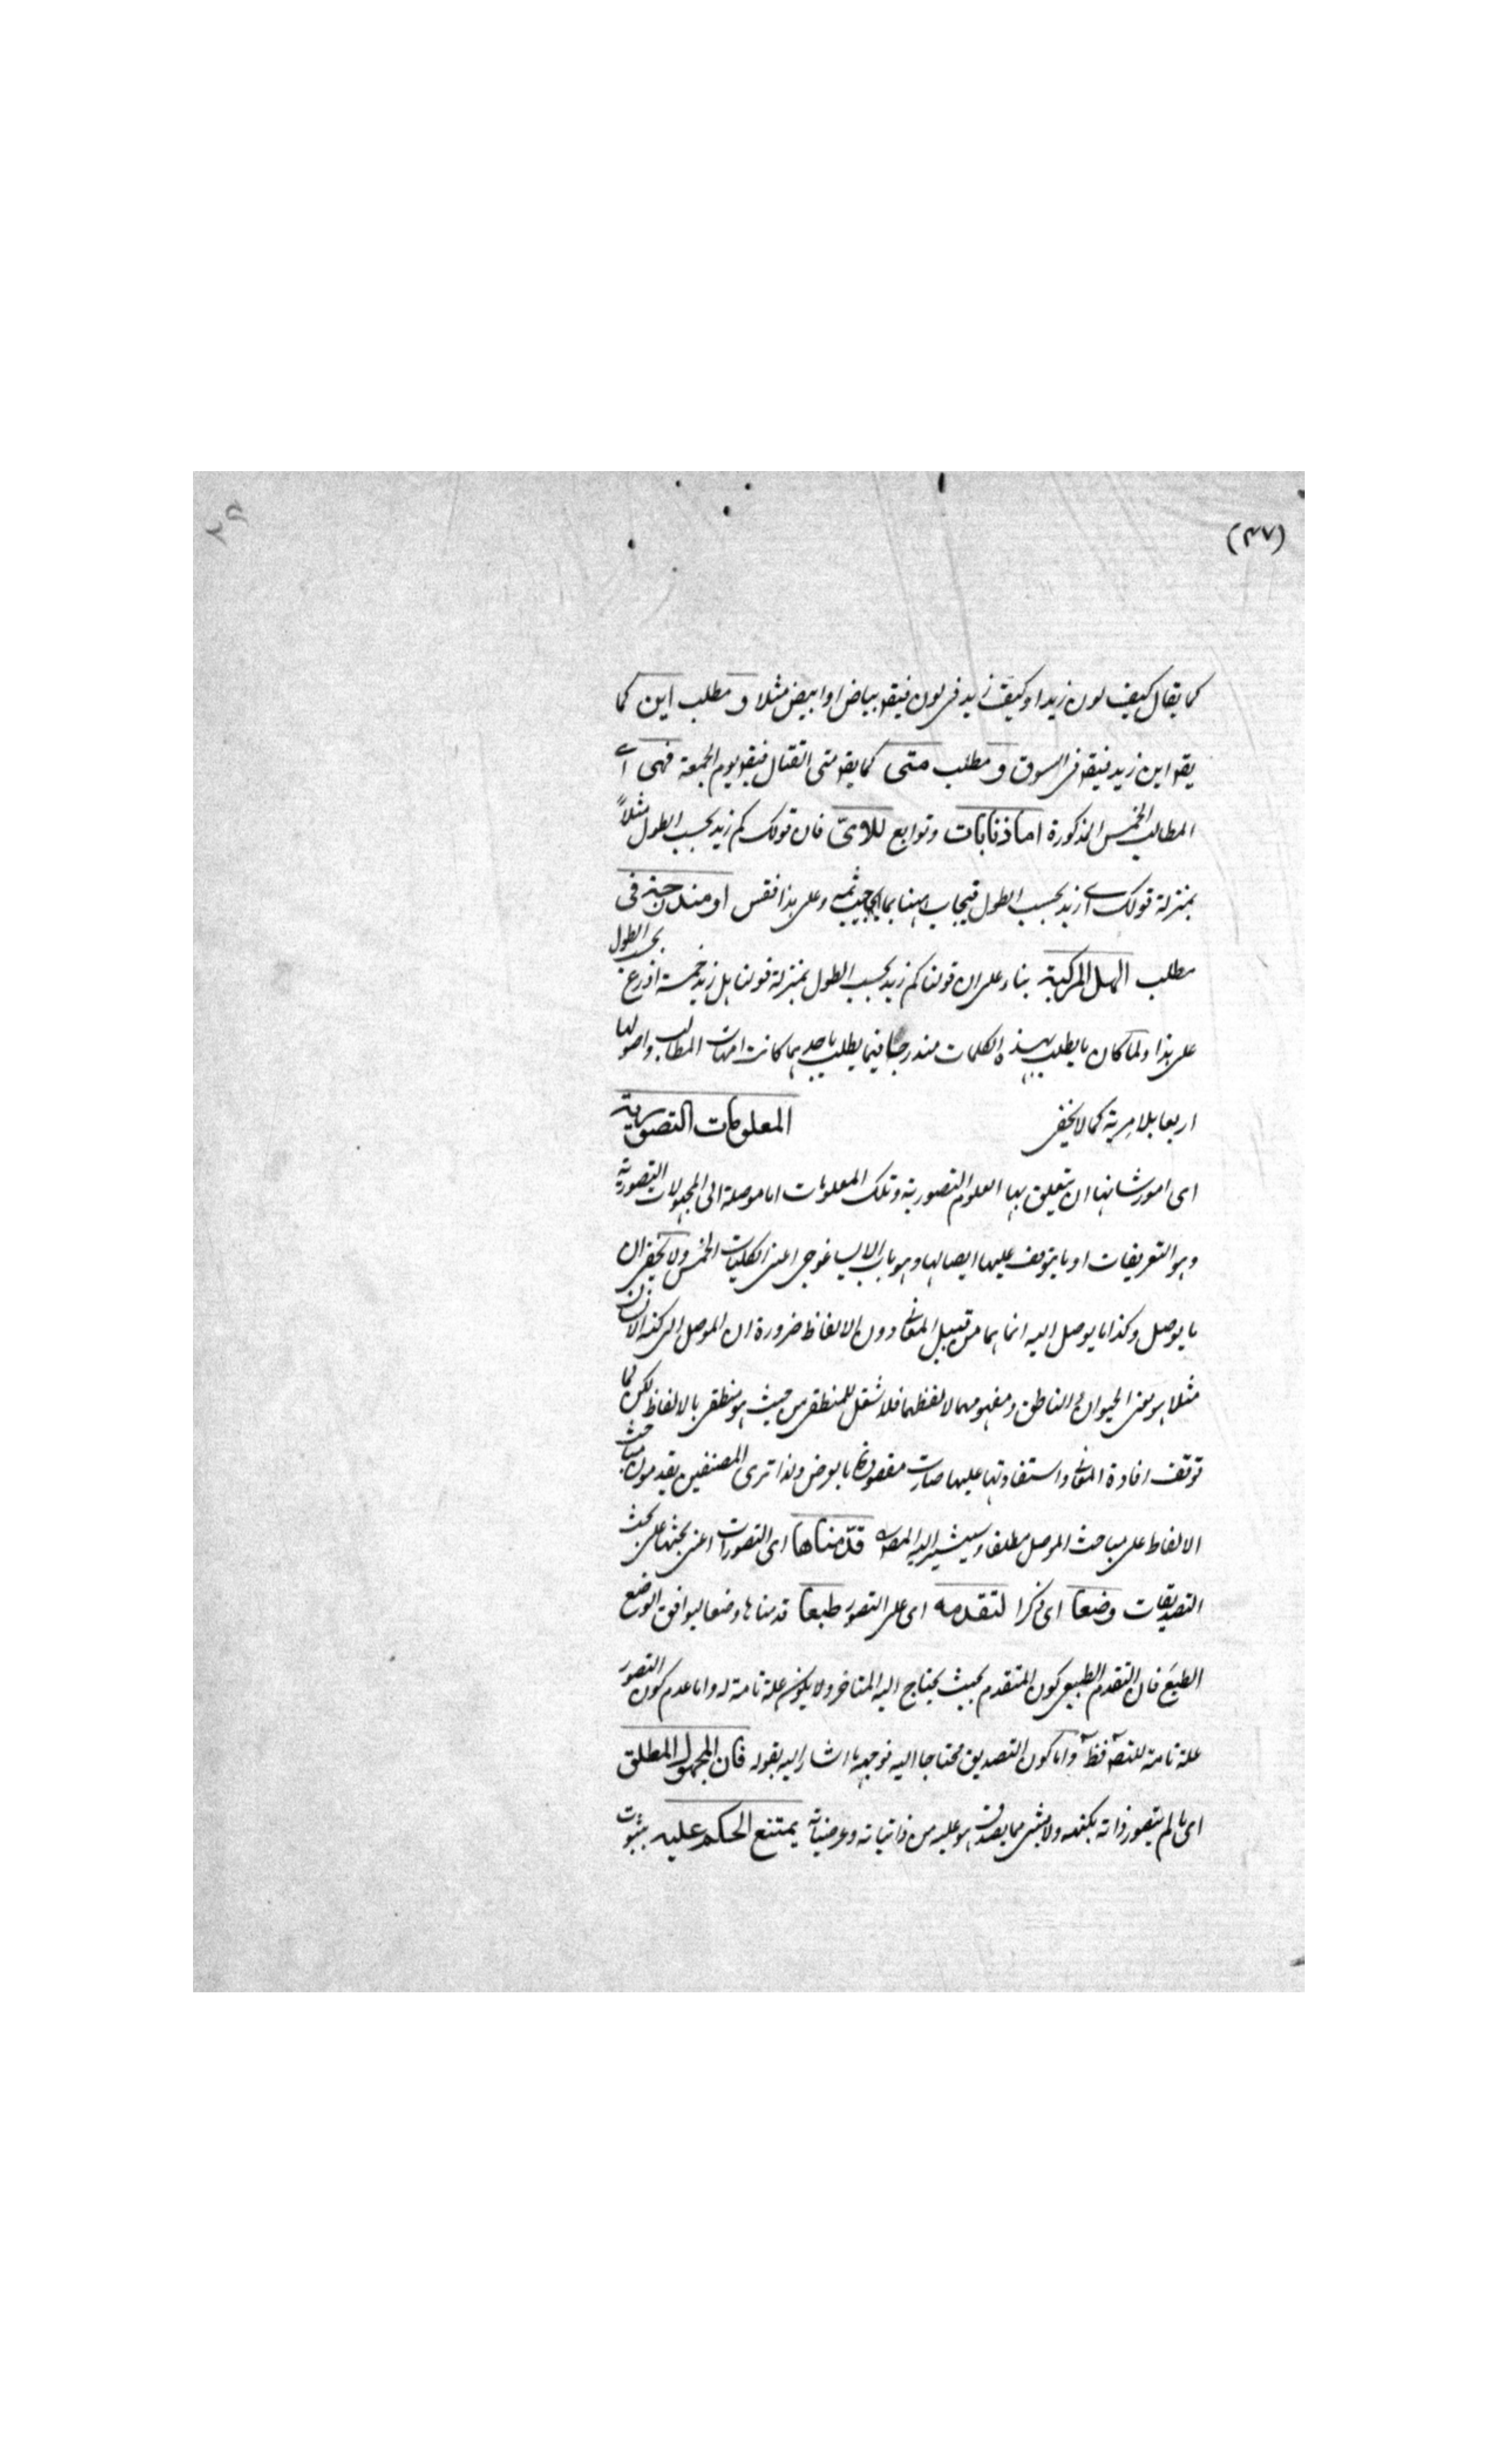 (٤٧)
٢٩
كما يقال كيف لون زيد او كيف زيد فى لون فيقو بياض او ابيض مثلا و مطلب اين كما
يقو اين زيد فيقو فى السوق و مطلب متى كما يقو متى القتال فيقو يوم الجمعة فهى اى
المطالب الخمس المذكورة اما ذنابات وتوابع للاىّ فان قولك كم زيد بحسب الطول مثلاً
بمنزلة قولك اى زيد بحسب الطول فيجاب ههنا بما يجاب ثمه وعلى هذا فقس او مندرجة فى
مطلب الهل المركبة بناء على ان قولنا كم زيد بحسب الطول بمنزلة قولنا هل زيد خمسة اذرع بحسب الطول
على هذا ولما كان ما يطلب بهذه الكلمات مندرجا فيما يطلب باحديهما كانت امهات المطالب واصولها
اربعا بلا مرية كما لا يخفى المعلومات التصورية
اى امور شانها ان يتعلق بها العلوم التصورية وتلك المعلومات اما موصلة الى المجهولات التصورية
وهو التعريفات او ما يتوقف عليها ايصالها وهو باب الايساغوجى اعنى الكليات الخمس ولا يخفى ان
ما يوصل وكذا ما يوصل اليه انما هما من قبيل المعانى دون الالفاظ ضرورة ان الموصل الى كنه الانسان
مثلا هو معنى الحيوان الناطق ومفهومهما لا لفظهما فلا شغل للمنطقى من حيث هو منطقى بالالفاظ لكن لما
توقف افادة المعانى واستفادتها عليها صارت مقصودة بالعرض ولذا ترى المصنفين يقدمون مباحث
الالفاظ على مباحث الموصل مطلقا وسيشير اليه المصنف قدمناها اى التصورات اعنى بحثها على بحث
التصديقات وضعا اى ذكرا لتقدمه اى على التصور طبعا قدمناها وضعا ليوافق الوضع
الطبع فان التقدم الطبيعى كون المتقدم بحيث يحتاج اليه المتاخر ولا يكون علة تامة له واما عدم كون التصور
علة تامة للتصـ فظـ واما كون التصديق محتاجا اليه فوجهه ما اشار اليه بقوله فان المجهول المطلق
اى ما لم يتصور ذاته بكنهه ولا بشئ مما يصدق هو عليه من ذاتياته وعرضياته يمتنع الحكم عليه بثبوت